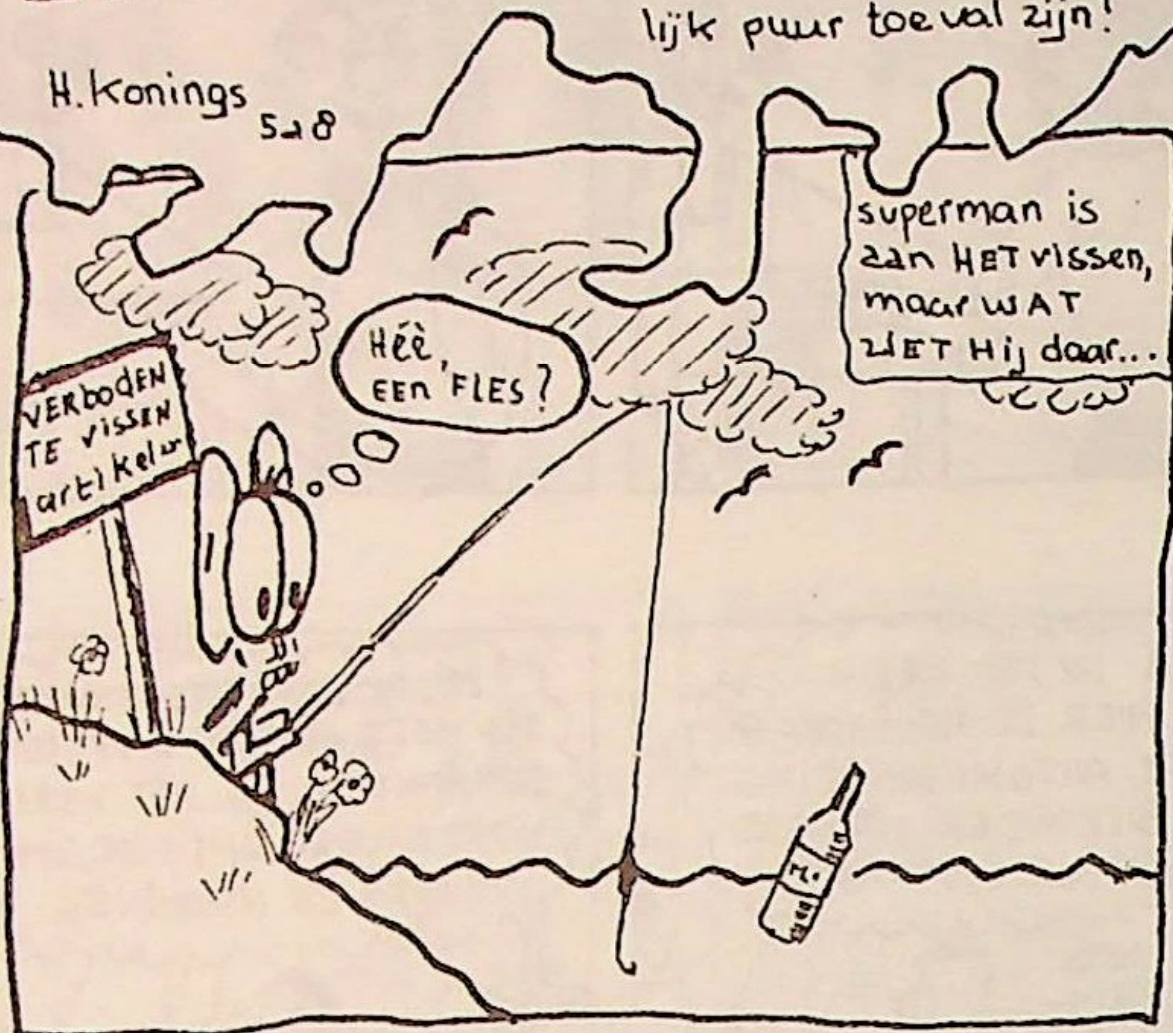 lijk puur toeval zijn!
H. Konings
superman is
aan HET vissen,
maar WAT
ZIET Hij daar...
Héè,
EEn 'FLES?
VERbODEN
TE VISSEN
artikel